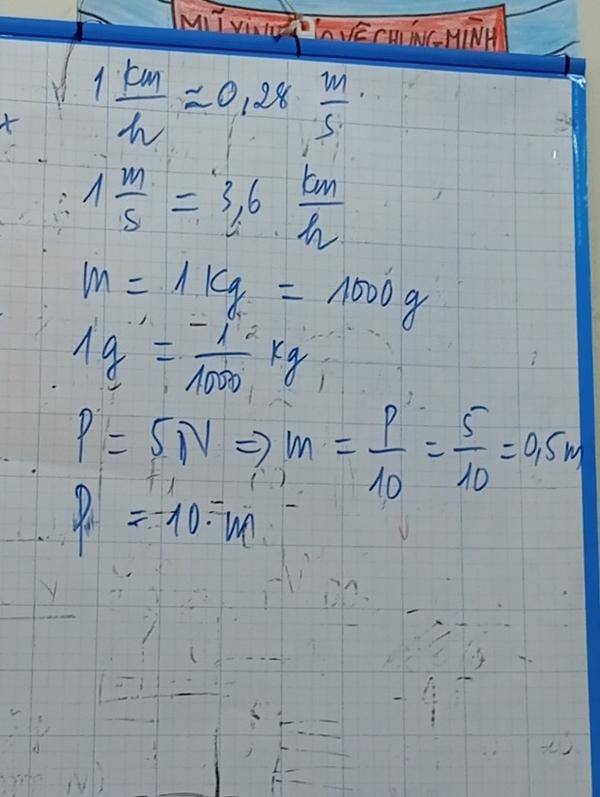 MŨ XINH BẢO VỆ CHÚNG MÌNH
1 km/h ≈ 0,28 m/s.
1 m/s = 3,6 km/h
m = 1 Kg = 1000 g
1 g = 1/1000 kg
P = 5N => m = P/10 = 5/10 = 0,5 m
P = 10. m